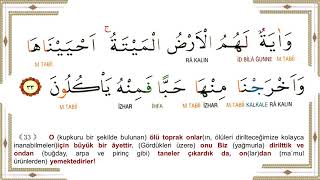 وَاٰيَةٌ لَهُمُ الْاَرْضُ الْمَيْتَةُ ۚ اَحْيَيْنَاهَا
M.TABİİ İD.BİLÂ GUNNE RÂ KALIN M.TABİİ
وَاَخْرَجْنَا مِنْهَا حَبًّا فَمِنْهُ يَأْكُلُونَ ﴿٣٣﴾
KALKALE RÂ KALIN M.TABİİ İZHAR İHFA İZHAR M.TABİİ
﴾33﴿ O (kupkuru bir şekilde bulunan) ölü toprak onlar(ın, ölüleri dirilteceğimize kolayca
inanabilmeleri)için büyük bir âyettir. (Gördükleri üzere) onu Biz (yağmurla) dirilttik ve
ondan (buğday, arpa ve pirinç gibi) taneler çıkardık da, on(lar)dan (ma'mul
ürünlerden) yemektedirler!